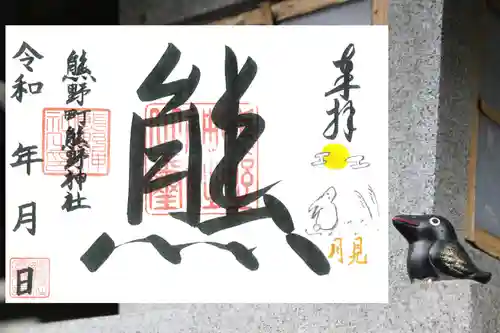 奉拝
月見
熊
熊野町熊野神社
令和 年 月 日